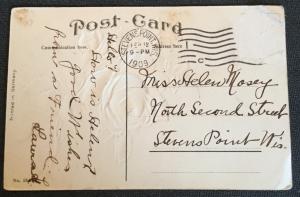 Post-Card
Communication here.
Address here
STEVENS POINT, WIS.
FEB 12
9-PM
1909
C
Hello!
How is Helen?
Good Wishes
from a Friend
Miss Helen Mosey
North Second Street
Stevens Point Wis.
Printed in Germany
No.